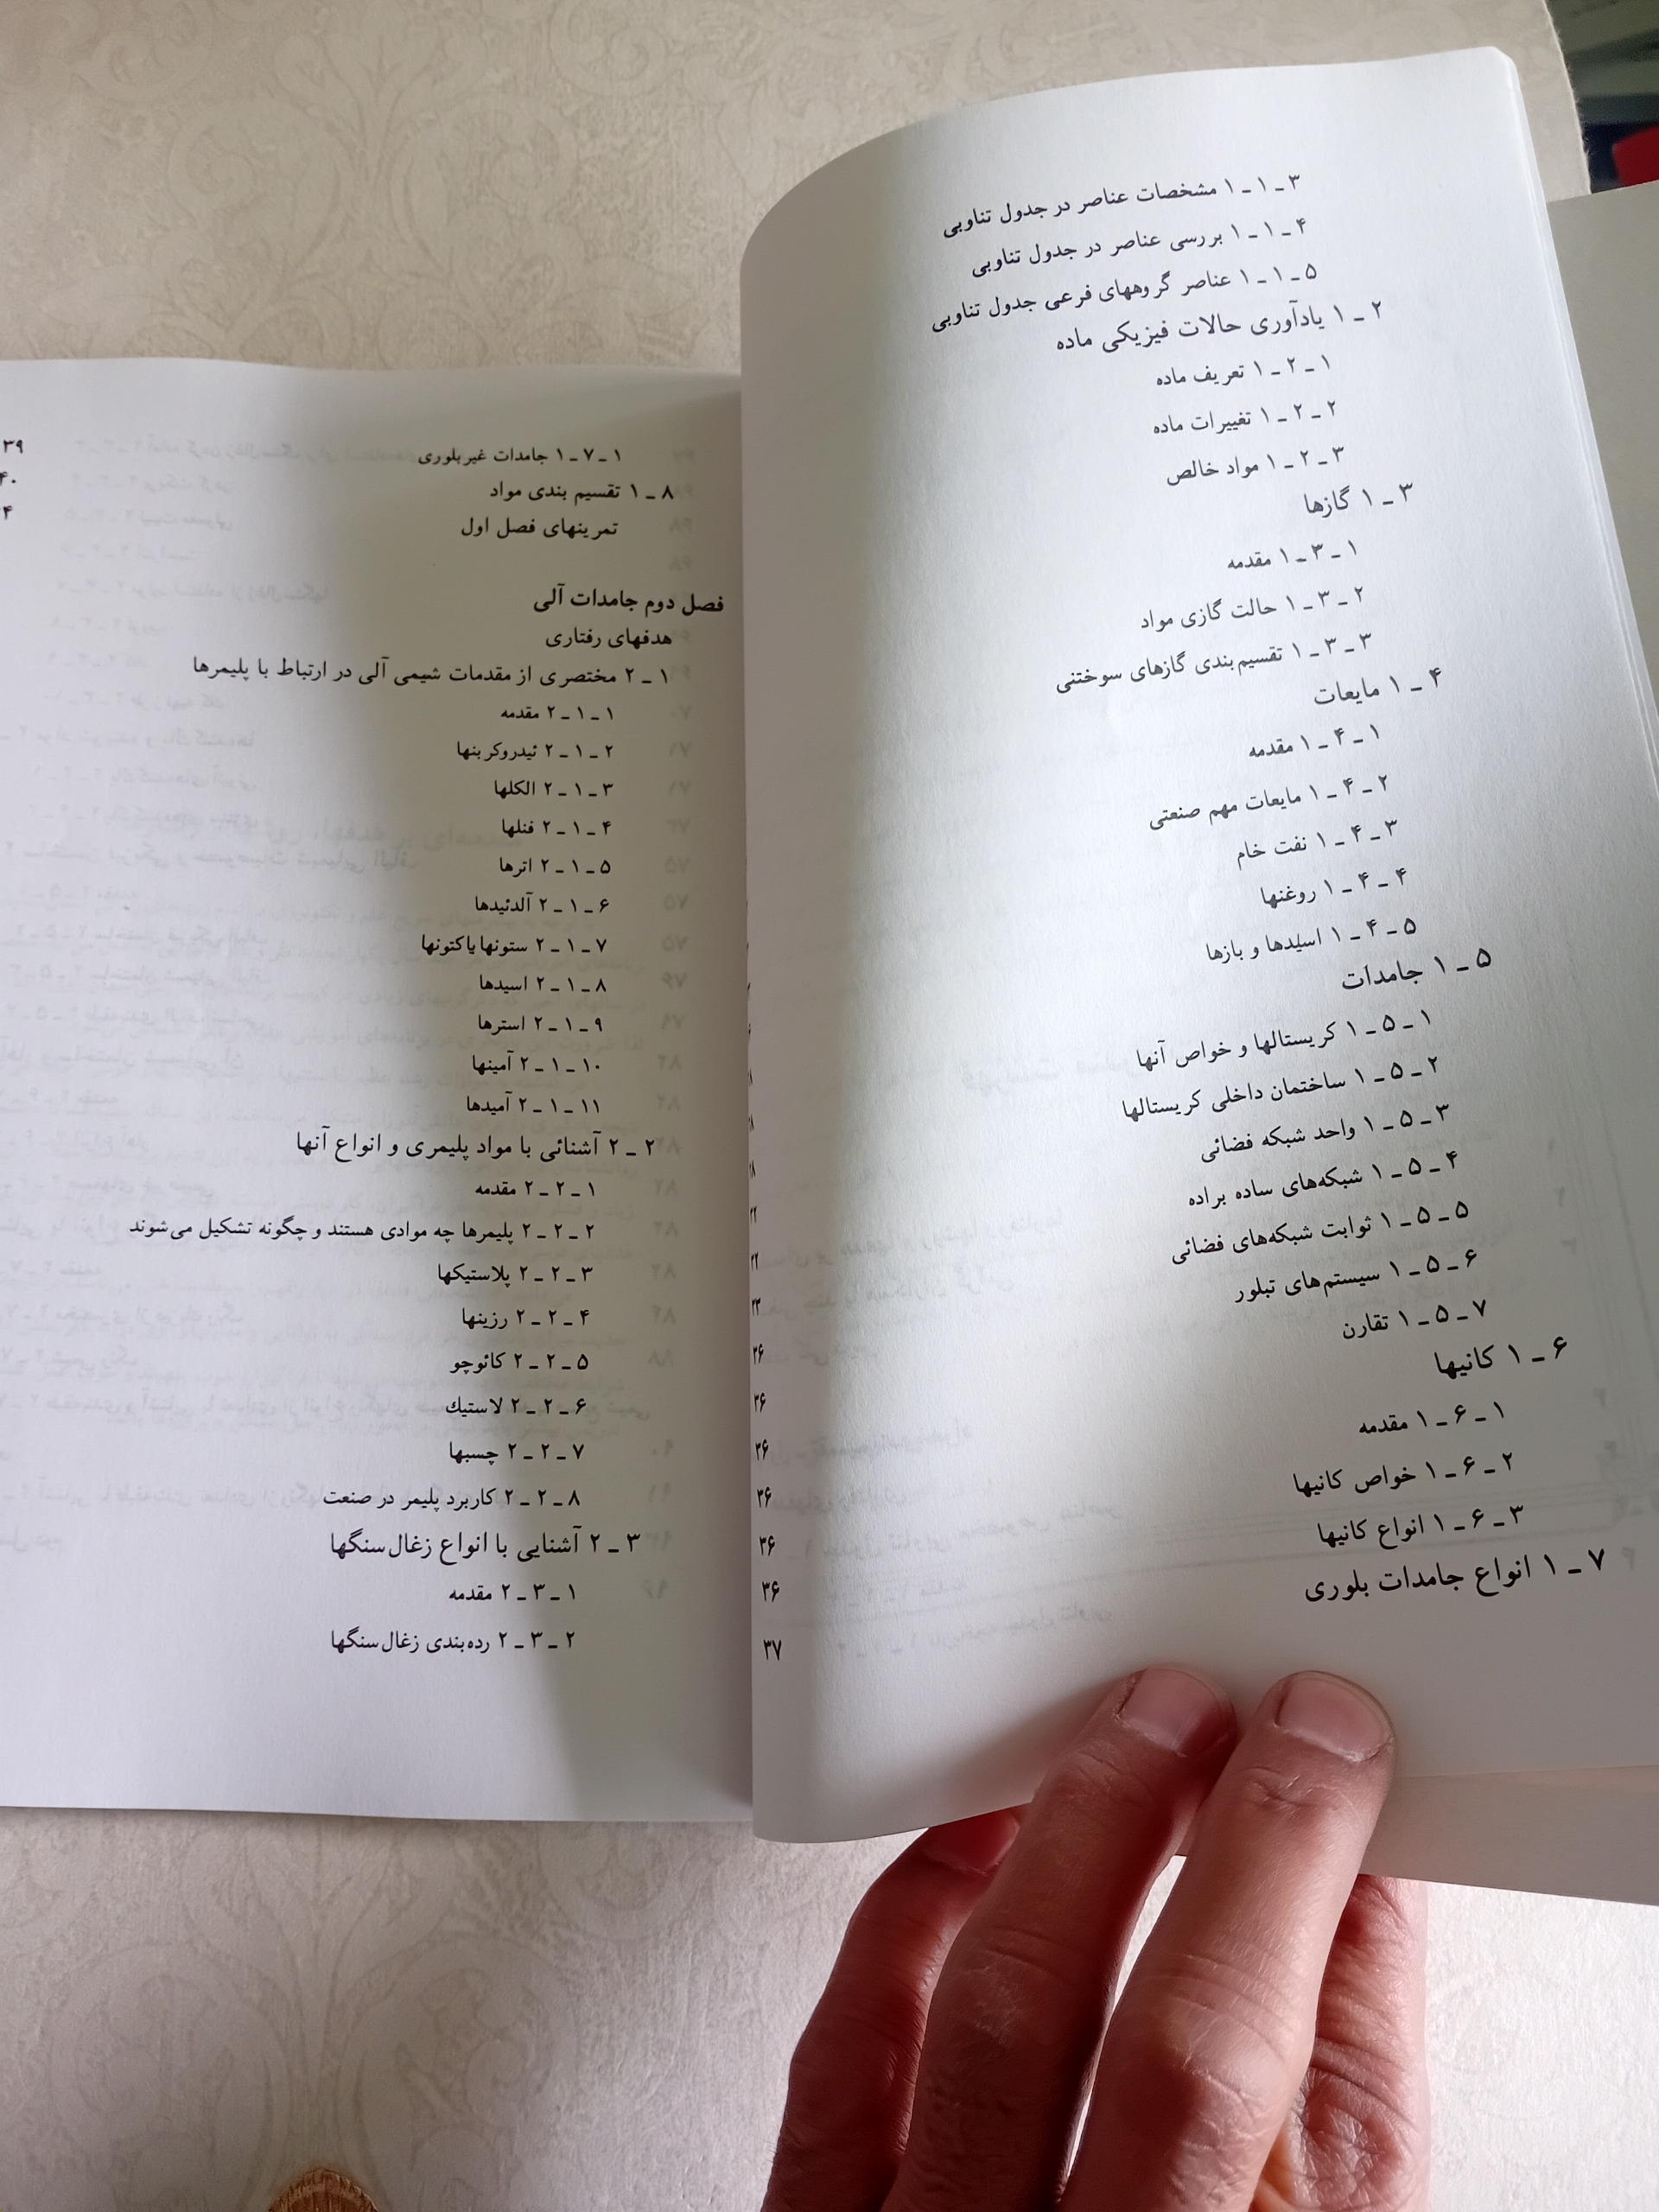 ۳ ـ ۱ ـ ۱ مشخصات عناصر در جدول تناوبی
۴ ـ ۱ ـ ۱ بررسی عناصر در جدول تناوبی
۵ ـ ۱ ـ ۱ عناصر گروههای فرعی جدول تناوبی
۲ ـ ۱ یادآوری حالات فیزیکی ماده
۱ ـ ۲ ـ ۱ تعریف ماده
۲ ـ ۲ ـ ۱ تغییرات ماده
۳ ـ ۲ ـ ۱ مواد خالص
۳ ـ ۱ گازها
۱ ـ ۳ ـ ۱ مقدمه
۲ ـ ۳ ـ ۱ حالت گازی مواد
۳ ـ ۳ ـ ۱ تقسیم‌بندی گازهای سوختنی
۴ ـ ۱ مایعات
۱ ـ ۴ ـ ۱ مقدمه
۲ ـ ۴ ـ ۱ مایعات مهم صنعتی
۳ ـ ۴ ـ ۱ نفت خام
۴ ـ ۴ ـ ۱ روغنها
۵ ـ ۴ ـ ۱ اسیدها و بازها
۵ ـ ۱ جامدات
۱ ـ ۵ ـ ۱ کریستالها و خواص آنها
۲ ـ ۵ ـ ۱ ساختمان داخلی کریستالها
۳ ـ ۵ ـ ۱ واحد شبکه فضائی
۴ ـ ۵ ـ ۱ شبکه‌های ساده براده
۵ ـ ۵ ـ ۱ ثوابت شبکه‌های فضائی
۶ ـ ۵ ـ ۱ سیستم‌های تبلور
۷ ـ ۵ ـ ۱ تقارن ۳۶
۶ ـ ۱ کانیها ۳۶
۱ ـ ۶ ـ ۱ مقدمه ۳۶
۲ ـ ۶ ـ ۱ خواص کانیها ۳۶
۳ ـ ۶ ـ ۱ انواع کانیها ۳۶
۷ ـ ۱ انواع جامدات بلوری ۳۶
۳۷
۱ ـ ۷ ـ ۱ جامدات غیربلوری ۳۹
۸ ـ ۱ تقسیم بندی مواد ۴۰
تمرینهای فصل اول
فصل دوم جامدات آلی
هدفهای رفتاری
۱ ـ ۲ مختصری از مقدمات شیمی آلی در ارتباط با پلیمرها
۱ ـ ۱ ـ ۲ مقدمه
۲ ـ ۱ ـ ۲ ئیدروکربنها
۳ ـ ۱ ـ ۲ الکلها
۴ ـ ۱ ـ ۲ فنلها
۵ ـ ۱ ـ ۲ اترها
۶ ـ ۱ ـ ۲ آلدئیدها
۷ ـ ۱ ـ ۲ ستونها یا کتونها
۸ ـ ۱ ـ ۲ اسیدها
۹ ـ ۱ ـ ۲ استرها
۱۰ ـ ۱ ـ ۲ آمینها
۱۱ ـ ۱ ـ ۲ آمیدها
۲ ـ ۲ آشنائی با مواد پلیمری و انواع آنها
۱ ـ ۲ ـ ۲ مقدمه
۲ ـ ۲ ـ ۲ پلیمرها چه موادی هستند و چگونه تشکیل می‌شوند
۳ ـ ۲ ـ ۲ پلاستیکها
۴ ـ ۲ ـ ۲ رزینها
۵ ـ ۲ ـ ۲ کائوچو
۶ ـ ۲ ـ ۲ لاستیك
۷ ـ ۲ ـ ۲ چسبها
۸ ـ ۲ ـ ۲ کاربرد پلیمر در صنعت
۳ ـ ۲ آشنایی با انواع زغال‌سنگها
۱ ـ ۳ ـ ۲ مقدمه
۲ ـ ۳ ـ ۲ رده‌بندی زغال‌سنگها